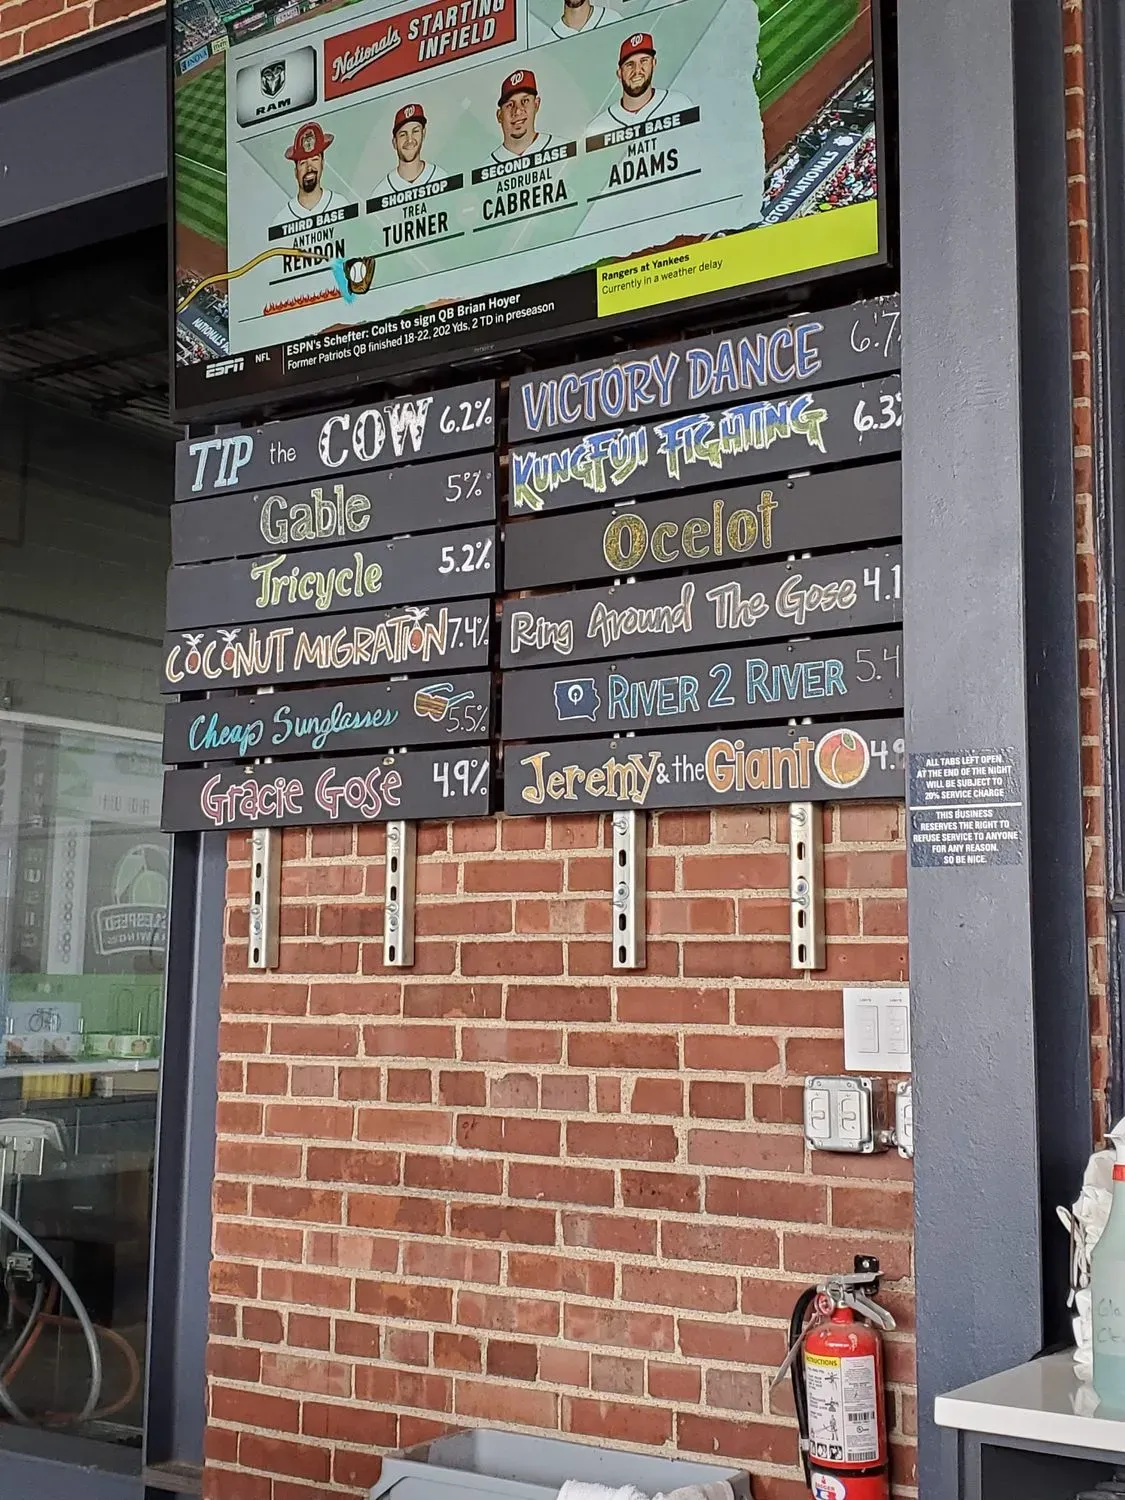 INOVA
RAM
Nationals STARTING
INFIELD
THIRD BASE
ANTHONY
RENDON
SHORTSTOP
TREA
TURNER
SECOND BASE
ASDRUBAL
CABRERA
FIRST BASE
MATT
ADAMS
NATIONALS
GTON NATIONALS
Rangers at Yankees
Currently in a weather delay
ESPN NFL
ESPN's Schefter: Colts to sign QB Brian Hoyer
Former Patriots QB finished 18-22, 202 Yds, 2 TD in preseason
TIP the COW 6.2%
Gable 5%
Tricycle 5.2%
COCONUT MIGRATION 7.4%
Cheap Sunglasses 5.5%
Gracie Gose 4.9%
VICTORY DANCE 6.7
KUNGFUJI FIGHTING 6.3%
Ocelot
Ring Around The Gose 4.1
RIVER 2 RIVER 5.4
Jeremy & the Giant 4.9
ALL TABS LEFT OPEN
AT THE END OF THE NIGHT
WILL BE SUBJECT TO
20% SERVICE CHARGE
THIS BUSINESS
RESERVES THE RIGHT TO
REFUSE SERVICE TO ANYONE
FOR ANY REASON.
SO BE NICE.
INSTRUCTIONS